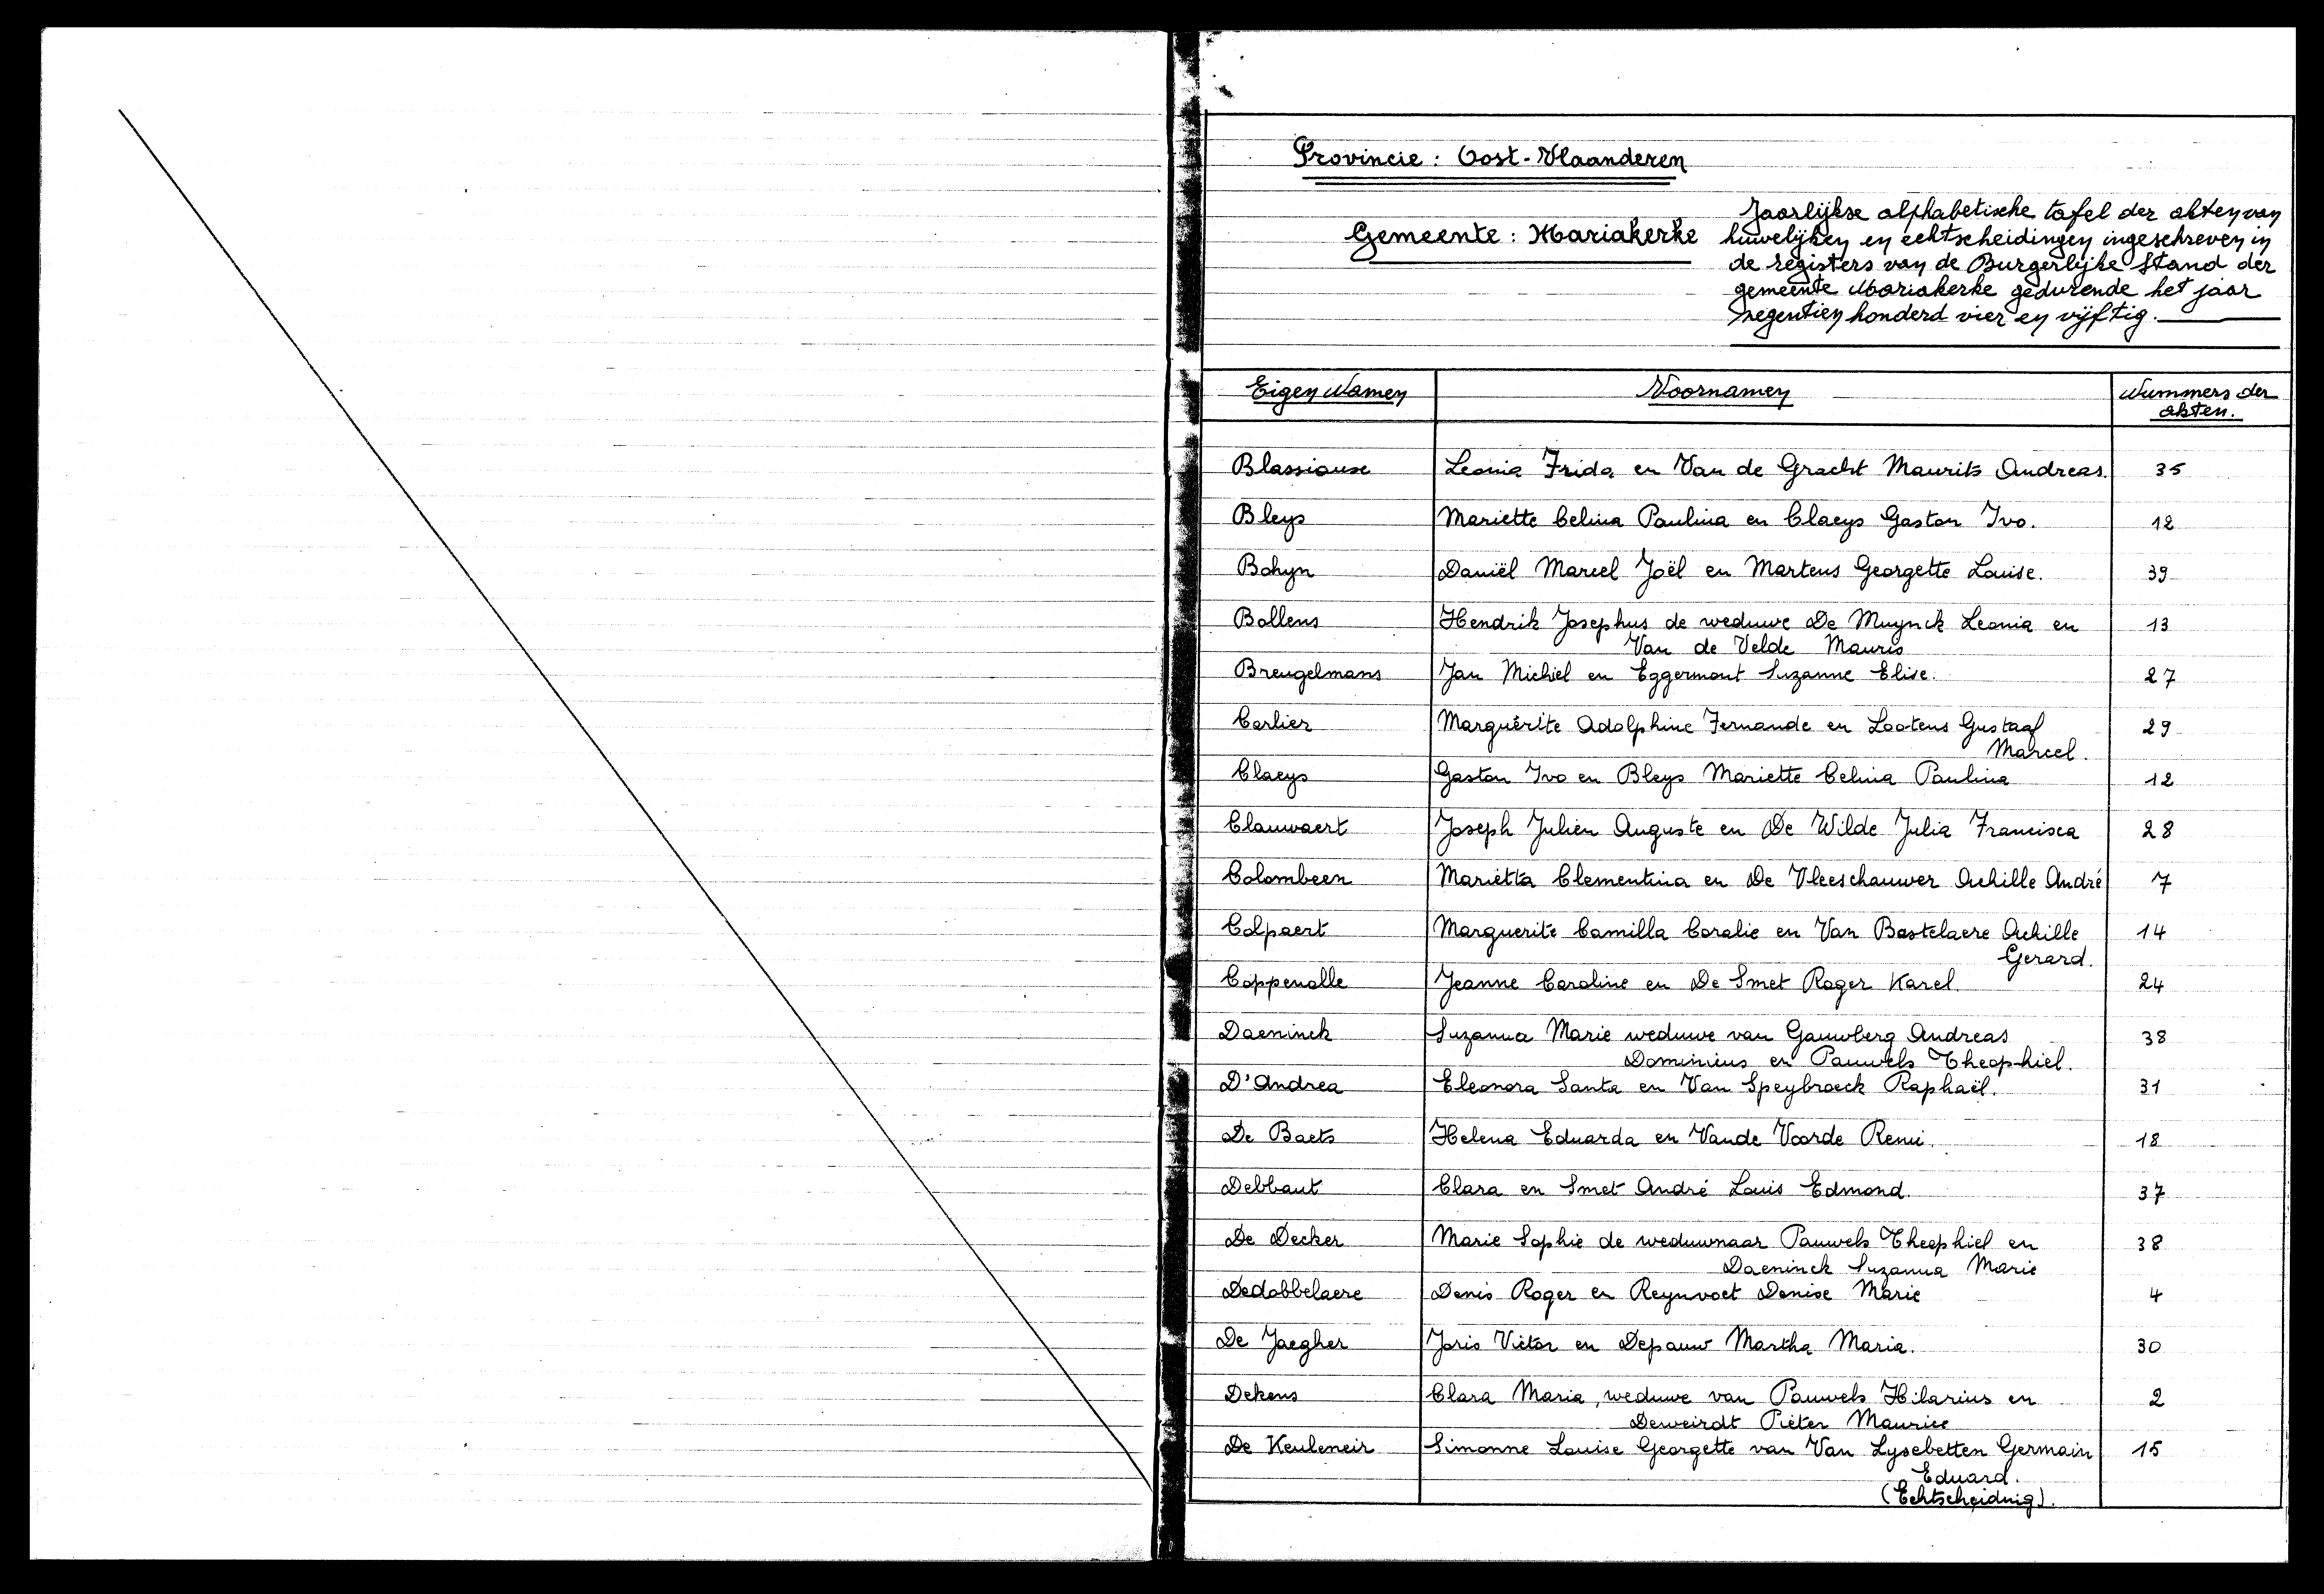 Provincie : Oost-Vlaanderen
Gemeente : Mariakerke
Jaarlijkse alphabetische tafel der akten van
huwelijken en echtscheidingen ingeschreven in
de registers van de Burgerlijke Stand der
gemeente Mariakerke gedurende het jaar
negentien honderd vier en vijftig.
Eigen Namen Voornamen Nummers der
akten.
Blassiause Leonia Frida en Van de Gracht Maurits Andreas. 35
Bleys Mariette Celina Paulina en Claeys Gaston Ivo. 12
Bohyn Daniël Marcel Joël en Martens Georgette Louise. 39
Bollens Hendrik Josephus de weduwe De Muynck Leonia en 13
Van de Velde Mauris
Breugelmans Jan Michiel en Eggermont Suzanne Elise. 27
Carlier Marguérite Adolphine Fernande en Lootens Gustaaf 29
Marcel.
Claeys Gaston Ivo en Bleys Mariette Celina Paulina 12
Clauwaert Joseph Julien Auguste en De Wilde Julia Francisca 28
Colombeen Marietta Clementina en De Vleeschauwer Achille André 7
Colpaert Marguerite Camilla Coralie en Van Bastelaere Achille 14
Gerard.
Coppenolle Jeanne Caroline en De Smet Roger Karel 24
Daeninck Suzanna Marie weduwe van Gauwberg Andreas 38
Dominius en Pauwels Theophiel.
D'Andrea Eleonora Santa en Van Speybroeck Raphaël. 31
De Baets Helena Eduarda en Vande Voorde Remi. 18
Debbaut Clara en Smet André Louis Edmond. 37
De Decker Marie Sophie de weduwnaar Pauwels Theophiel en 38
Daeninck Suzanna Marie
Dedobbelaere Denis Roger en Reynvoet Denise Marie 4
De Jaegher Joris Victor en Depauw Martha Maria. 30
Dekens Clara Maria, weduwe van Pauwels Hilarius en 2
Deweirdt Pieter Maurice
De Keuleneir Simonne Louise Georgette van Van Lysebetten Germain 15
Eduard.
(Echtscheidnig).